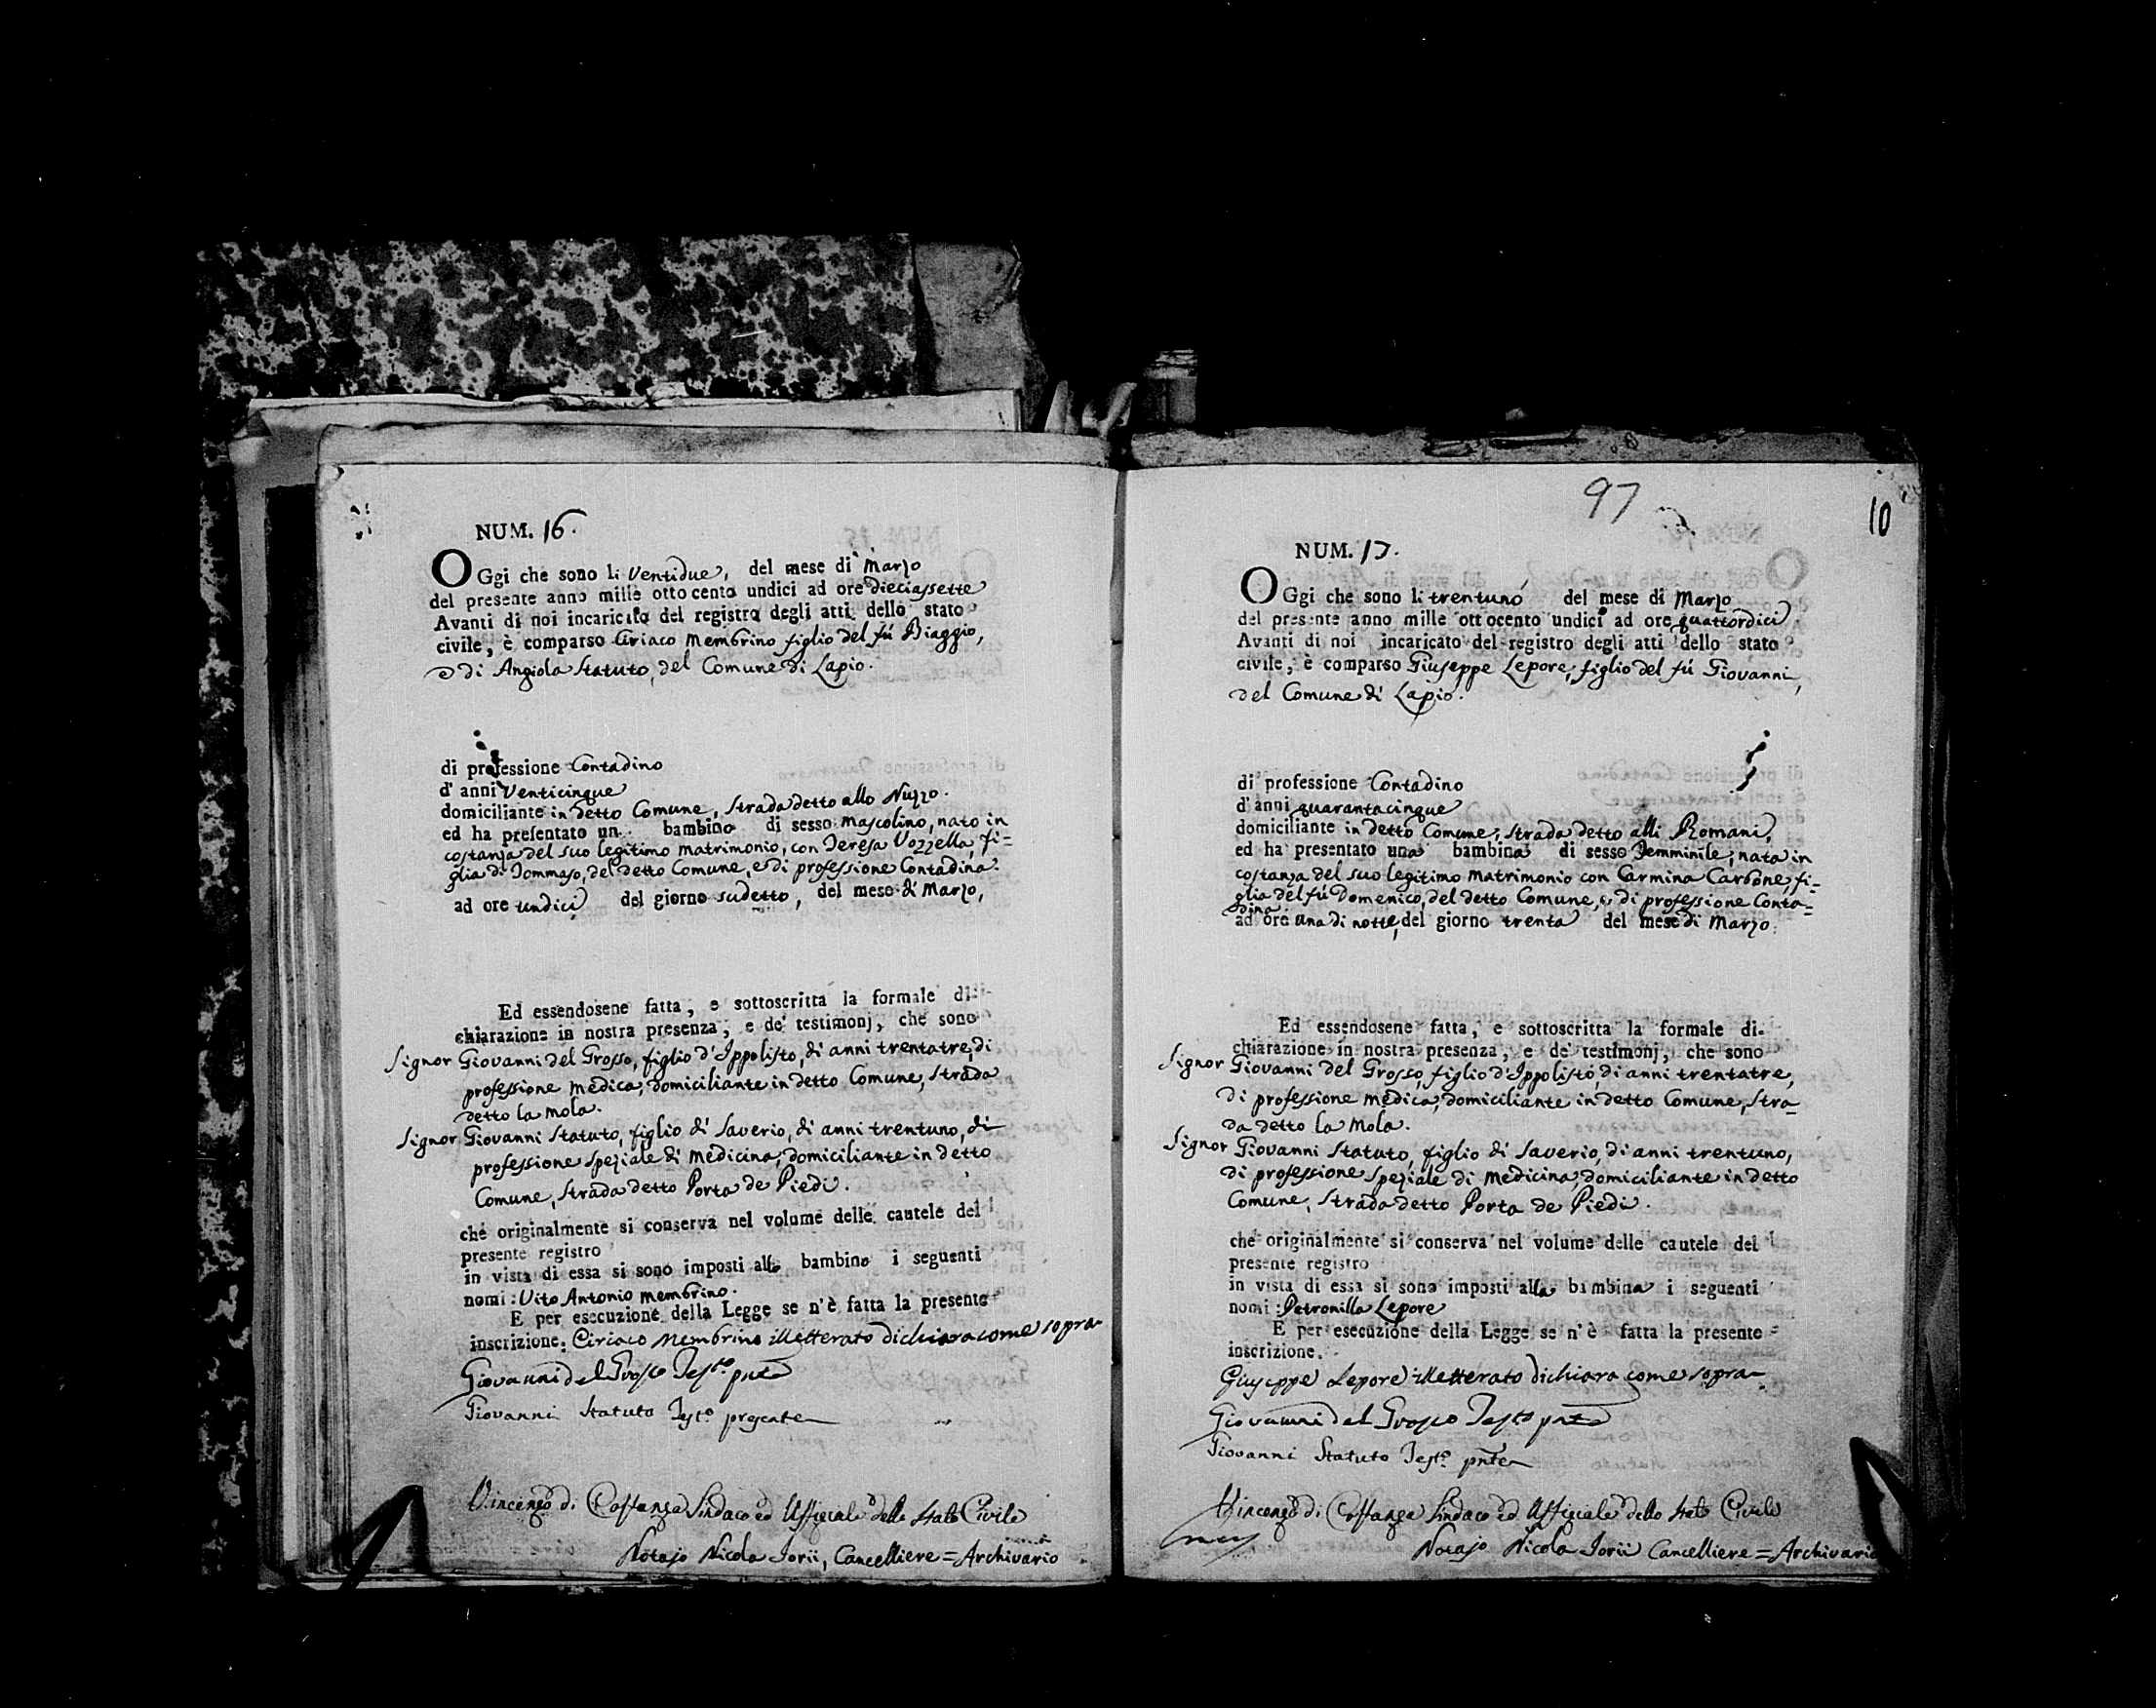 NUM. 16.
OGgi che sono li Ventidue, del mese di Marzo
del presente anno mille ottocento undici ad ore dieciassette
Avanti di noi incaricato del registro degli atti dello stato
civile, è comparso Ciriaco Membrino figlio del fú Biaggio,
e di Angiola Statuto, del Comune di Lapio.
di professione Contadino
d' anni Venticinque
domiciliante in detto Comune, Strada detto allo Nuzzo.
ed ha presentato un bambino di sesso mascolino, nato in
costanza del suo legitimo matrimonio, con Teresa Vozzella, fi=
glia di Tommaso, del detto Comune, e di professione Contadina.
ad ore undici del giorno sudetto, del mese di Marzo,
Ed essendosene fatta, e sottoscritta la formale di-
chiarazione in nostra presenza, e de' testimonj, che sono
Signor Giovanni del Grosso, figlio d'Ippolisto, di anni trentatre, di
professione medica, domiciliante in detto Comune, Strada
detto la mola.
Signor Giovanni Statuto, figlio di Saverio, di anni trentuno, di
professione Speziale di medicina, domiciliante in detto
Comune, Strada detto Porta de Piedi.
che originalmente si conserva nel volume delle cautele del
presente registro
in vista di essa si sono imposti allo bambino i seguenti
nomi: Vito Antonio Membrino.
E per esecuzione della Legge se n'è fatta la presente
inscrizione. Ciriaco Membrino illetterato dichiara come sopra
Giovanni del Grosso Testo. pnte
Giovanni Statuto Testo. presente
Vincenzo di Costanza Sindaco ed Uffiziale dello Stato Civile
Notajo Nicola Jorii, Cancelliere = Archivario
97
10
NUM. 17.
OGgi che sono li trentuno del mese di Marzo
del presente anno mille ottocento undici ad ore quattordici
Avanti di noi incaricato del registro degli atti dello stato
civile, è comparso Giuseppe Lepore, figlio del fú Giovanni,
del Comune di Lapio.
di professione Contadino
d'anni quarantacinque
domiciliante in detto Comune, Strada detto alli Romani,
ed ha presentato una bambina di sesso femminile, nata in
costanza del suo legitimo matrimonio con Carmina Carbone, fi=
glia del fú Domenico, del detto Comune, e di professione Conta=
dina
ad ore una di notte, del giorno trenta del mese di Marzo.
Ed essendosene fatta, e sottoscritta la formale di-
chiarazione in nostra presenza, e de' testimonj, che sono
Signor Giovanni del Grosso, figlio d'Ippolisto, di anni trentatre,
di professione medica, domiciliante in detto Comune, Stra=
da detto la mola.
Signor Giovanni Statuto, figlio di Saverio, di anni trentuno,
di professione Speziale di medicina, domiciliante in detto
Comune, Strada detto Porta de Piedi.
che originalmente si conserva nel volume delle cautele del
presente registro
in vista di essa si sono imposti alla bambina i seguenti
nomi: Petronilla Lepore
E per esecuzione della Legge se n'è fatta la presente
inscrizione.
Giuseppe Lepore illetterato dichiara come sopra
Giovanni del Grosso Testo pnte
Giovanni Statuto Testo. pnte
Vincenzo di Costanza Sindaco ed Uffiziale dello Stato Civile
Notajo Nicola Jorii Cancelliere = Archivario